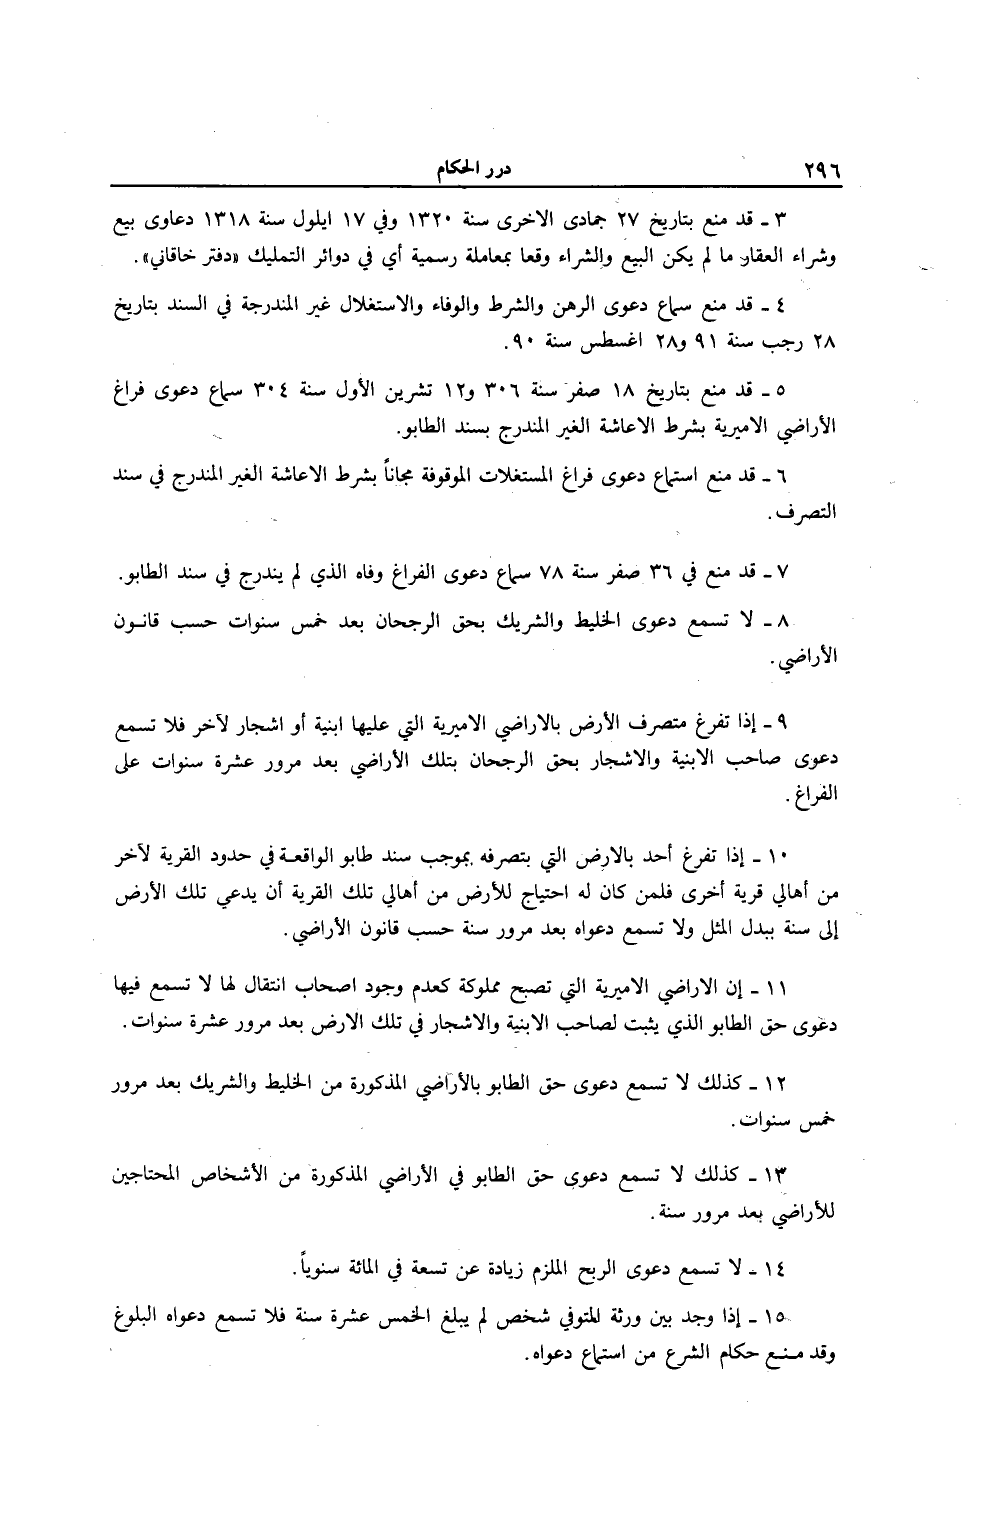 ٢٩٦ درر الحكام
٣ ـ قد منع بتاريخ ٢٧ جمادى الاخرى سنة ١٣٢٠ وفي ١٧ ايلول سنة ١٣١٨ دعاوى بيع
وشراء العقار ما لم يكن البيع والشراء وقعا بمعاملة رسمية أي في دوائر التمليك «دفتر خاقاني».
٤ ـ قد منع سماع دعوى الرهن والشرط والوفاء والاستغلال غير المندرجة في السند بتاريخ
٢٨ رجب سنة ٩١ و٢٨ اغسطس سنة ٩٠.
٥ ـ قد منع بتاريخ ١٨ صفر سنة ٣٠٦ و١٢ تشرين الأول سنة ٣٠٤ سماع دعوى فراغ
الأراضي الاميرية بشرط الاعاشة الغير المندرج بسند الطابو.
٦ ـ قد منع استماع دعوى فراغ المستغلات الموقوفة مجاناً بشرط الاعاشة الغير المندرج في سند
التصرف.
٧ ـ قد منع في ٣٦ صفر سنة ٧٨ سماع دعوى الفراغ وفاه الذي لم يندرج في سند الطابو.
٨ ـ لا تسمع دعوى الخليط والشريك بحق الرجحان بعد خمس سنوات حسب قانون
الأراضي.
٩ ـ إذا تفرغ متصرف الأرض بالاراضي الاميرية التي عليها ابنية أو اشجار لآخر فلا تسمع
دعوى صاحب الابنية والاشجار بحق الرجحان بتلك الأراضي بعد مرور عشرة سنوات على
الفراغ.
١٠ ـ إذا تفرغ أحد بالارض التي بتصرفه بموجب سند طابو الواقعة في حدود القرية لآخر
من أهالي قرية أخرى فلمن كان له احتياج للأرض من أهالي تلك القرية أن يدعي تلك الأرض
إلى سنة ببدل المثل ولا تسمع دعواه بعد مرور سنة حسب قانون الأراضي.
١١ ـ إن الاراضي الاميرية التي تصبح مملوكة كعدم وجود اصحاب انتقال لها لا تسمع فيها
دعوى حق الطابو الذي يثبت لصاحب الابنية والاشجار في تلك الارض بعد مرور عشرة سنوات.
١٢ ـ كذلك لا تسمع دعوى حق الطابو بالأراضي المذكورة من الخليط والشريك بعد مرور
خمس سنوات.
١٣ ـ كذلك لا تسمع دعوى حق الطابو في الأراضي المذكورة من الأشخاص المحتاجين
للأراضي بعد مرور سنة.
١٤ ـ لا تسمع دعوى الربح الملزم زيادة عن تسعة في المائة سنوياً.
١٥ ـ إذا وجد بين ورثة المتوفي شخص لم يبلغ الخمس عشرة سنة فلا تسمع دعواه البلوغ
وقد منع حكام الشرع من استماع دعواه.